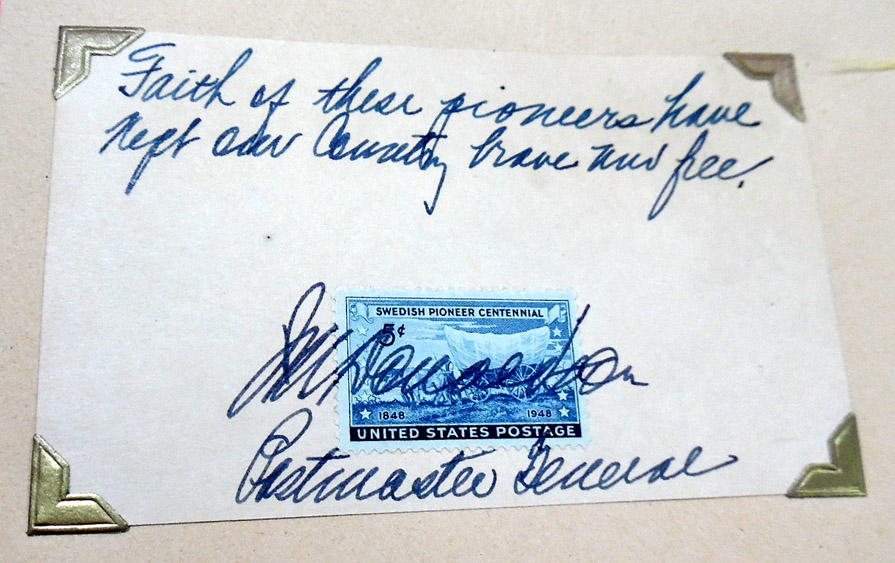 Faith of these pioneers have
kept our Country brave and free.
SWEDISH PIONEER CENTENNIAL
5¢
JM Donaldson
1848 1948
UNITED STATES POSTAGE
Postmaster General